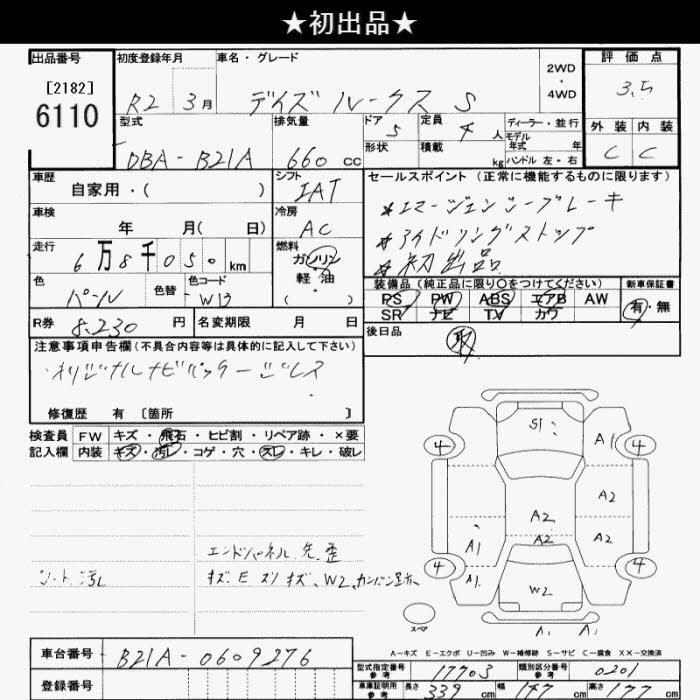 ★初出品★
出品番号 初度登録年月 車名・グレード 2WD・4WD 評価点
[2182] 6110 R2 3月 デイズ ルークス S 3.5
型式 排気量 ドア 5 定員 4人 ディーラー・並行 外装 内装
DBA-B21A 660cc 形状 積載 kg モデル年式 年 ハンドル 左・右 C C
車歴 シフト セールスポイント (正常に機能するものに限ります)
自家用・( ) IAT *エマージェンシーブレーキ
車検 年 月( 日) 冷房 AC *アイドリングストップ
走行 6万8千050km 燃料 ガソリン・軽・油 *初出品
色 パール 色替 色コード W13 装備品 (純正品に限り○をつけてください) 新車保証書
PS PW ABS エアB AW 有・無
SR ナビ TV カワ
R券 8.230円 名変期限 月 日 後日品 取
注意事項申告欄(不具合内容等は具体的に記入して下さい)
オリジナルナビパッケージレス
修復歴 有 [箇所 ]
検査員 FW キズ・飛石・ヒビ割・リペア跡・×要
記入欄 内装 キズ・汚れ・コゲ・穴・スレ・キレ・破レ
S1
4 A1 4
A2
A1 A2 A2 A2
4 A1 W2 4
スペア A1 A1
エンドパネル
シート汚レ
キズ E スリキズ、W2、
A-キズ E-エクボ U-凹み W-補修跡 S-サビ C-腐食 XX-交換済
車台番号 B21A-0609276
登録番号
型式指定番号参考 17703 類別区分番号参考 0201
車庫証明用参考 長さ 339cm 幅 147cm 高さ 177cm